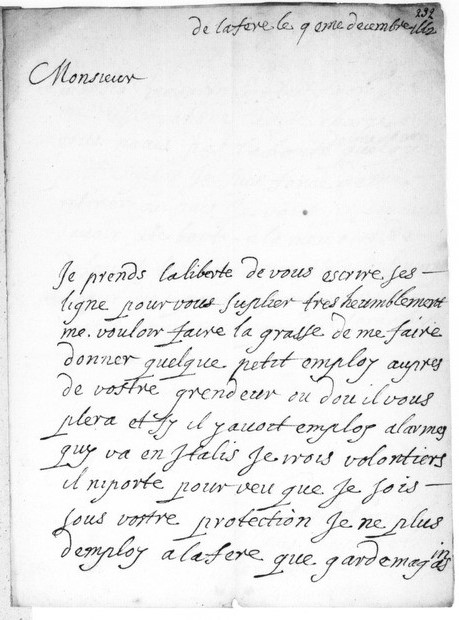 232
de lafere le 9 eme decembre 1662
Monsieur
Je prends laliberte de vous escrire ses
ligne pour vous suplier tres heumblement
me vouloir faire la grasse de me faire
donner quelque petit employ aupres
de vostre grendeur ou dou il vous
plera et sy il y avoit employ alarmes
quy va en Italis Je irois volontiers
il niporte pour veu que Je sois
sous vostre protection Je ne plus
demploy a lafere que garde magasin